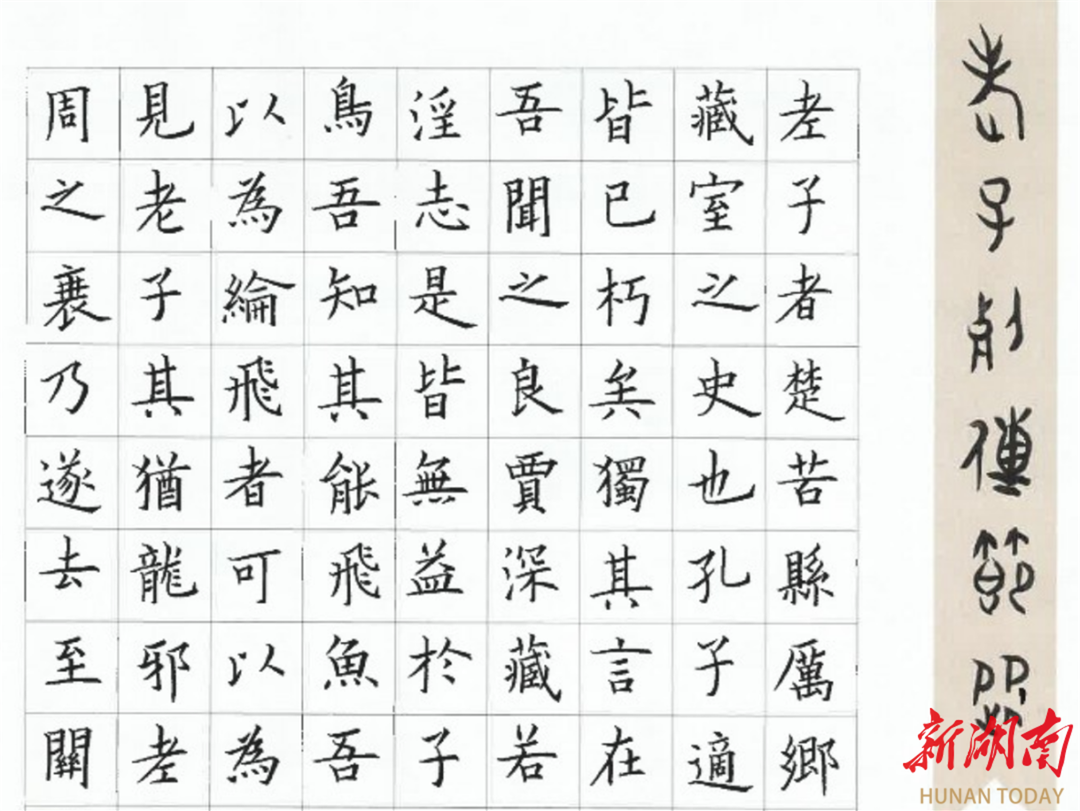 老子列傳節
老子者楚苦縣厲鄉
藏室之史也孔子適
皆已朽矣獨其言在
吾聞之良賈深藏若
淫志是皆無益於子
鳥吾知其能飛魚吾
以為綸飛者可以為
見老子其猶龍邪老
周之衰乃遂去至關
新湖南
HUNAN TODAY